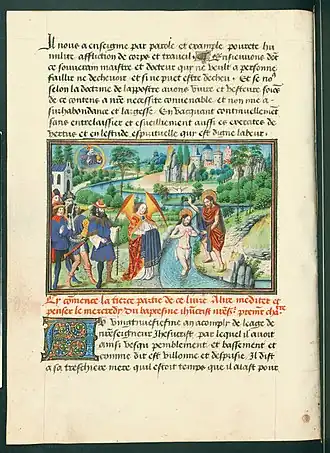 Il nous a enseigne par parole et example pourete hu
milite affliction de corps et travail. Ensieuvons dot
ce souverain maistre et docteur qui ne veult a personne
faillir ne decheuoir et si ne puet estre decheu. Et se no9
selon la doctrine de lapostre auons viure et vesture soiôs
de ce contens a nre necessite conuenable et non mie a
suhabondance et largesse. En vacquant continuelement
sans entrelaissier et cueilliement aussi es exercites de
vertus et en lestude espirituelle qui est digne labeur.
Cy comence la tierce partie de ce livre A lire mediter et
penser le mercredy Du baptesme ihucrist nres. premier chaitre
vingtneufiesme an acomply de leage de
nreseigneur Jhesucrist, par lequel il auoit
ainsi vesqu peniblement et bassement et
comme dit est villonne et desprisie. Il dist
a sa treschiere mere quil estoit temps que il alast pour